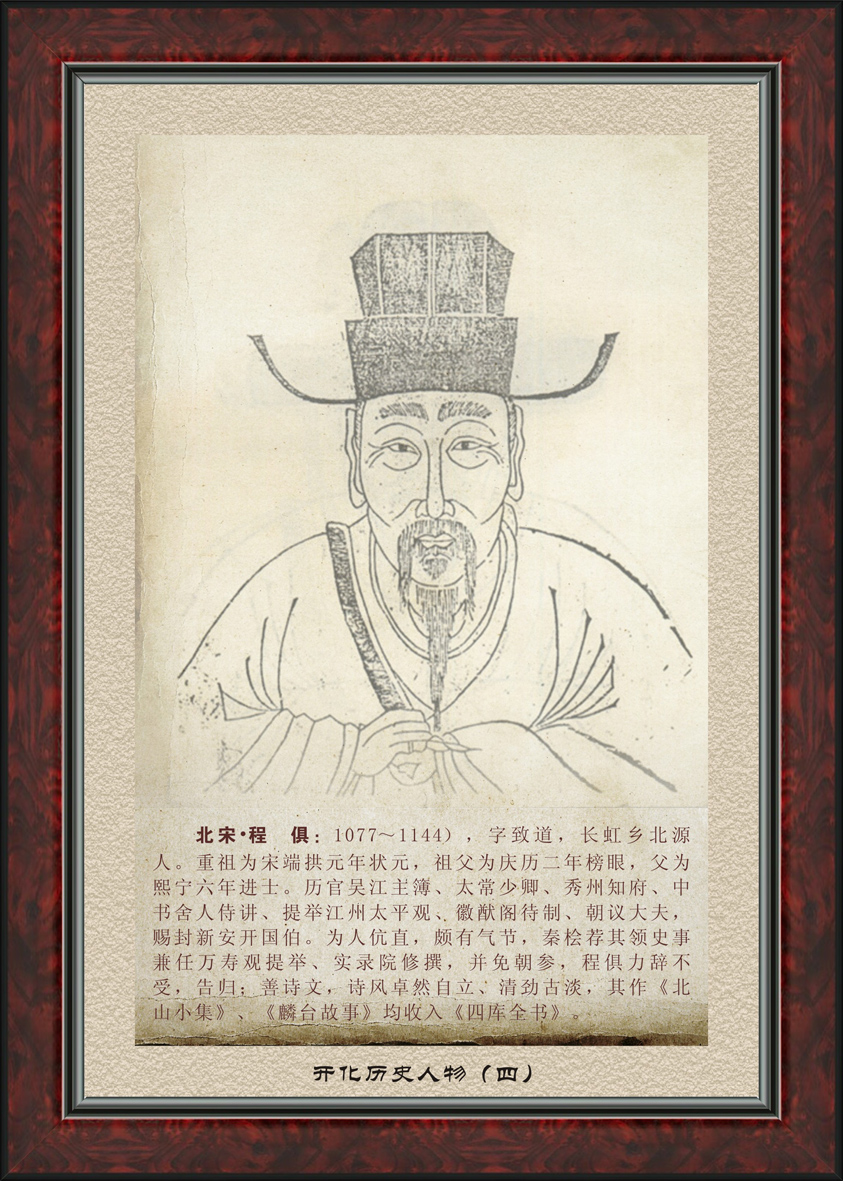 北宋·程　俱：1077～1144），字致道，长虹乡北源
人。重祖为宋端拱元年状元，祖父为庆历二年榜眼，父为
熙宁六年进士。历官吴江主簿、太常少卿、秀州知府、中
书舍人侍讲、提举江州太平观、徽猷阁待制、朝议大夫，
赐封新安开国伯。为人伉直，颇有气节，秦桧荐其领史事
兼任万寿观提举、实录院修撰，并免朝参，程俱力辞不
受，告归；善诗文，诗风卓然自立、清劲古淡，其作《北
山小集》、《麟台故事》均收入《四库全书》。
开化历史人物（四）